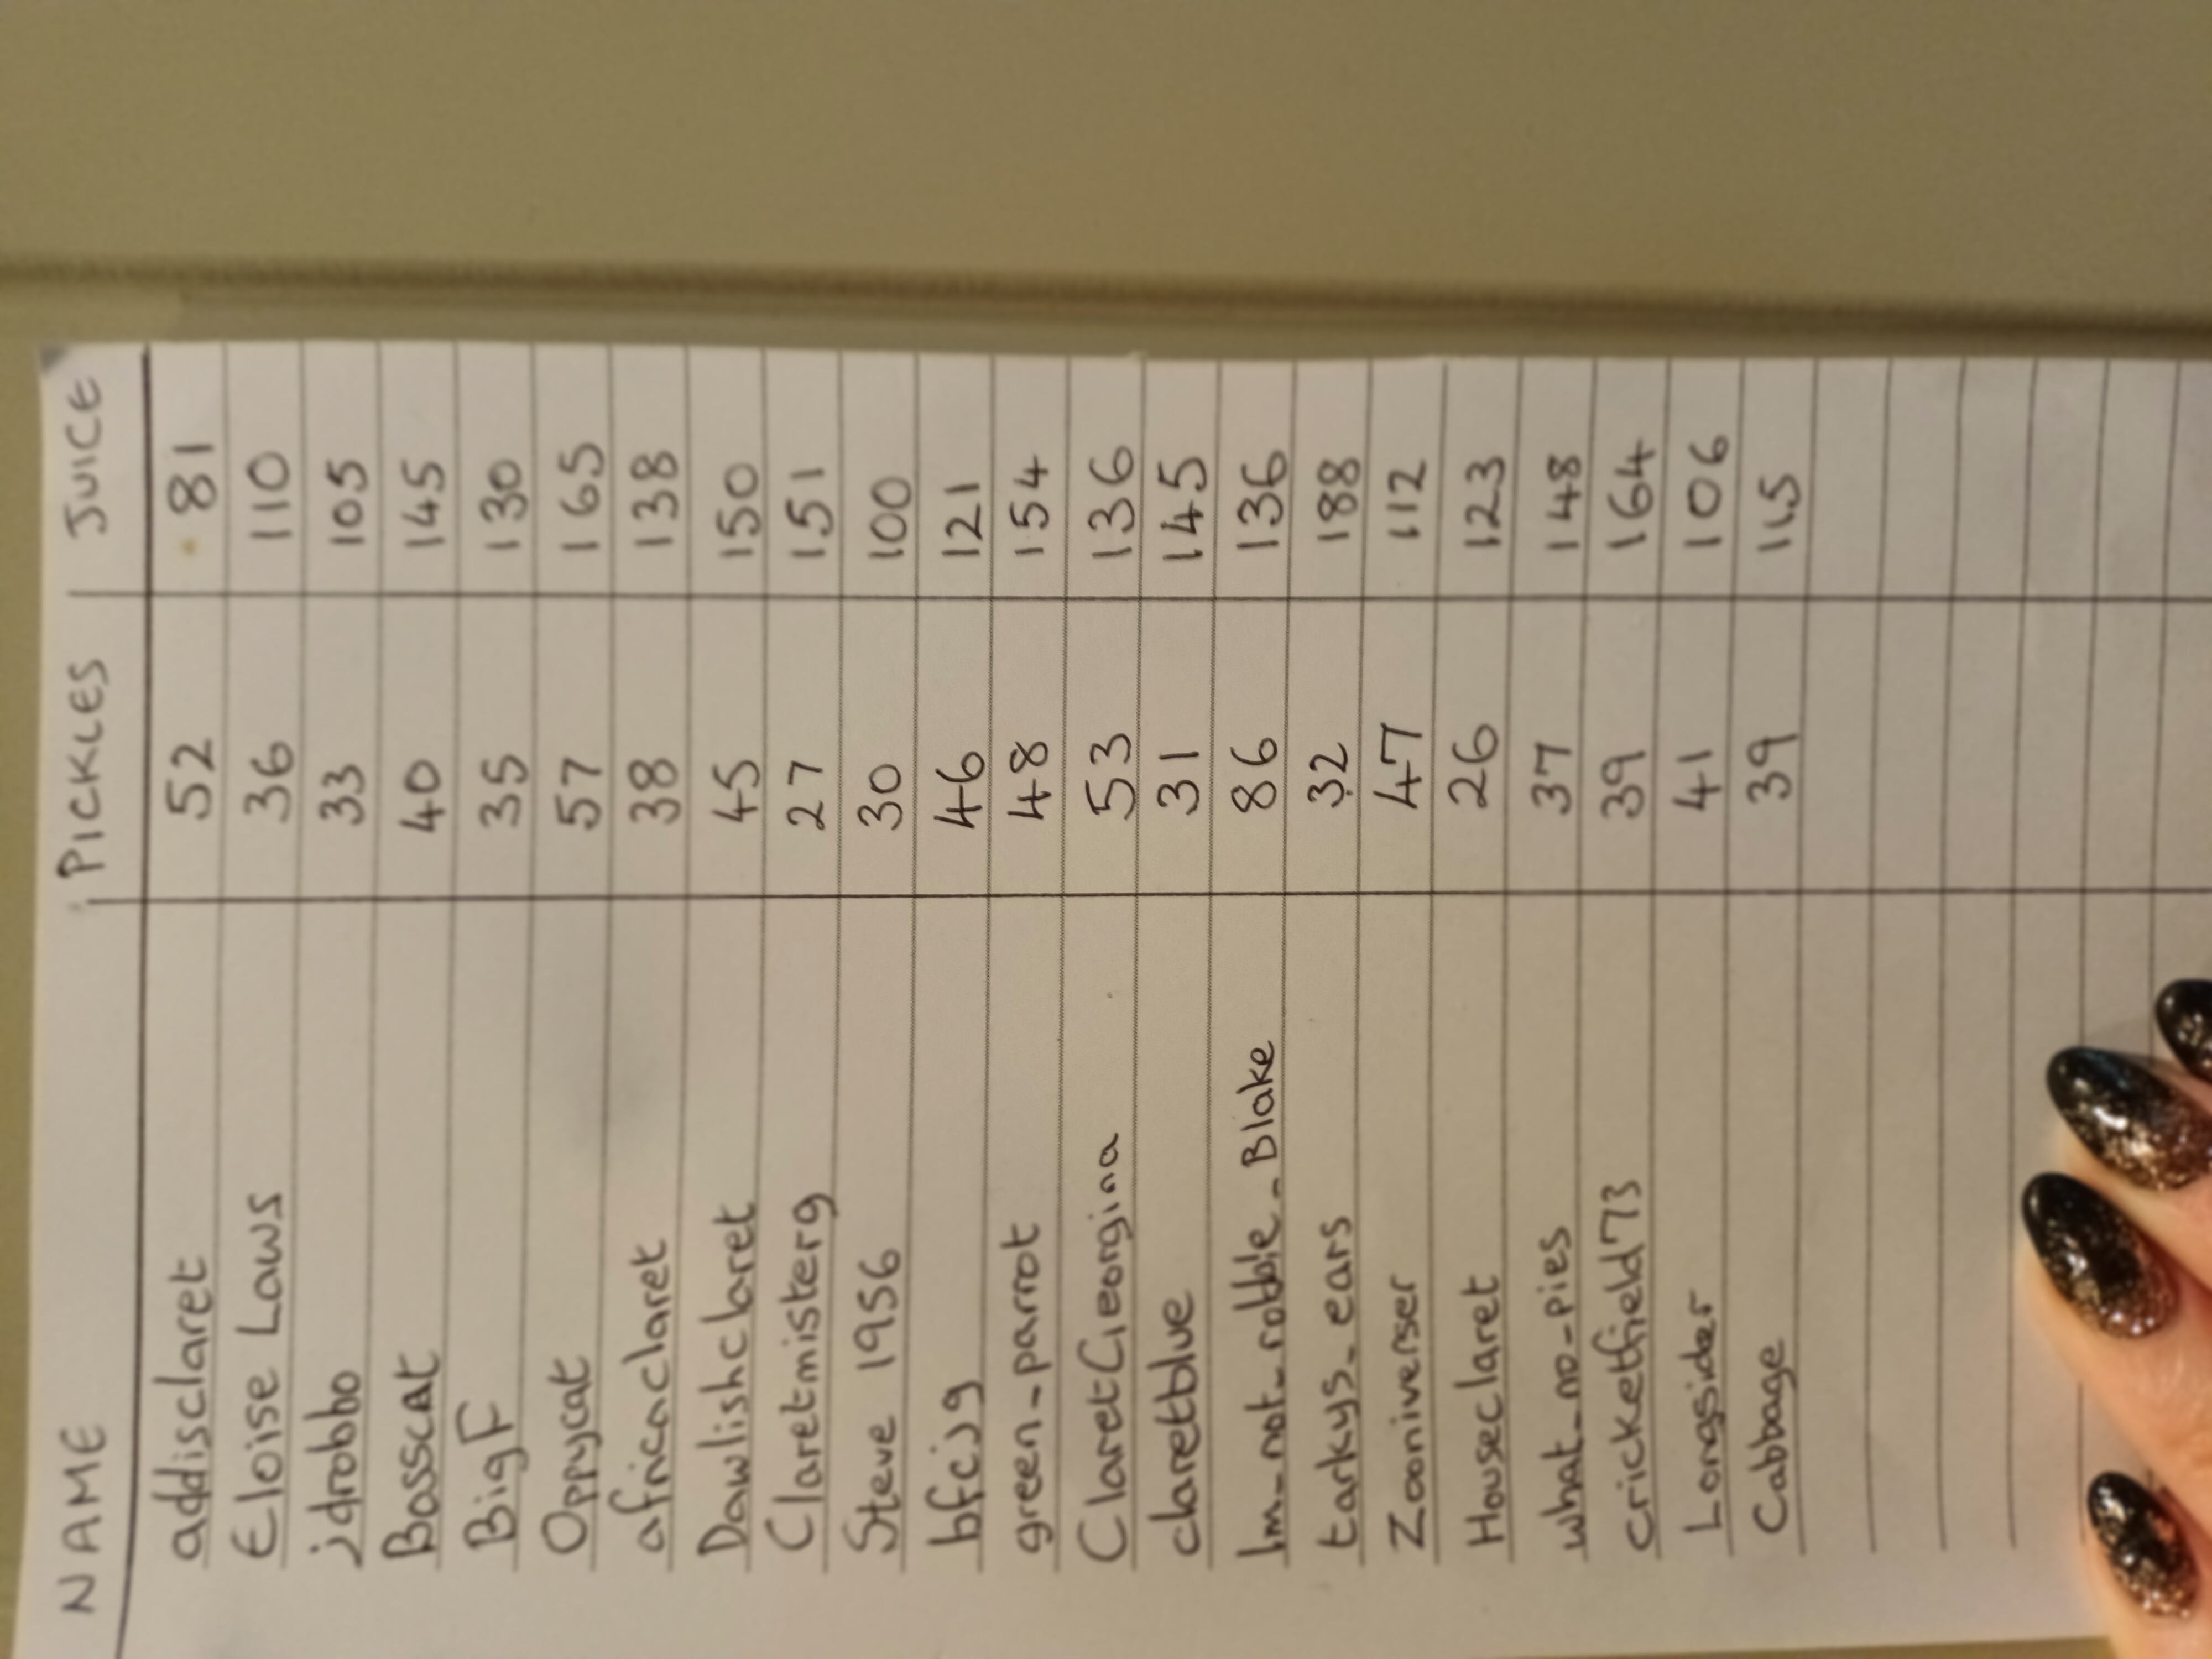 NAME PICKLES JUICE
addisclaret 52 81
Eloise Laws 36 110
jdrobbo 33 105
Bosscat 40 145
BigF 35 130
Oppycat 57 165
africaclaret 38 138
Dawlishclaret 45 150
Claretmisterg 27 151
Steve 1956 30 100
bfcjg 46 121
green-parrot 48 154
ClaretGeorgina 53 136
claretblue 31 145
Im-not-robbie-Blake 86 136
tarkys-ears 32 188
Zooniverser 47 112
Houseclaret 26 123
what-no-pies 37 148
Cricketfield73 39 164
Longsider 41 106
Cabbage 39 115